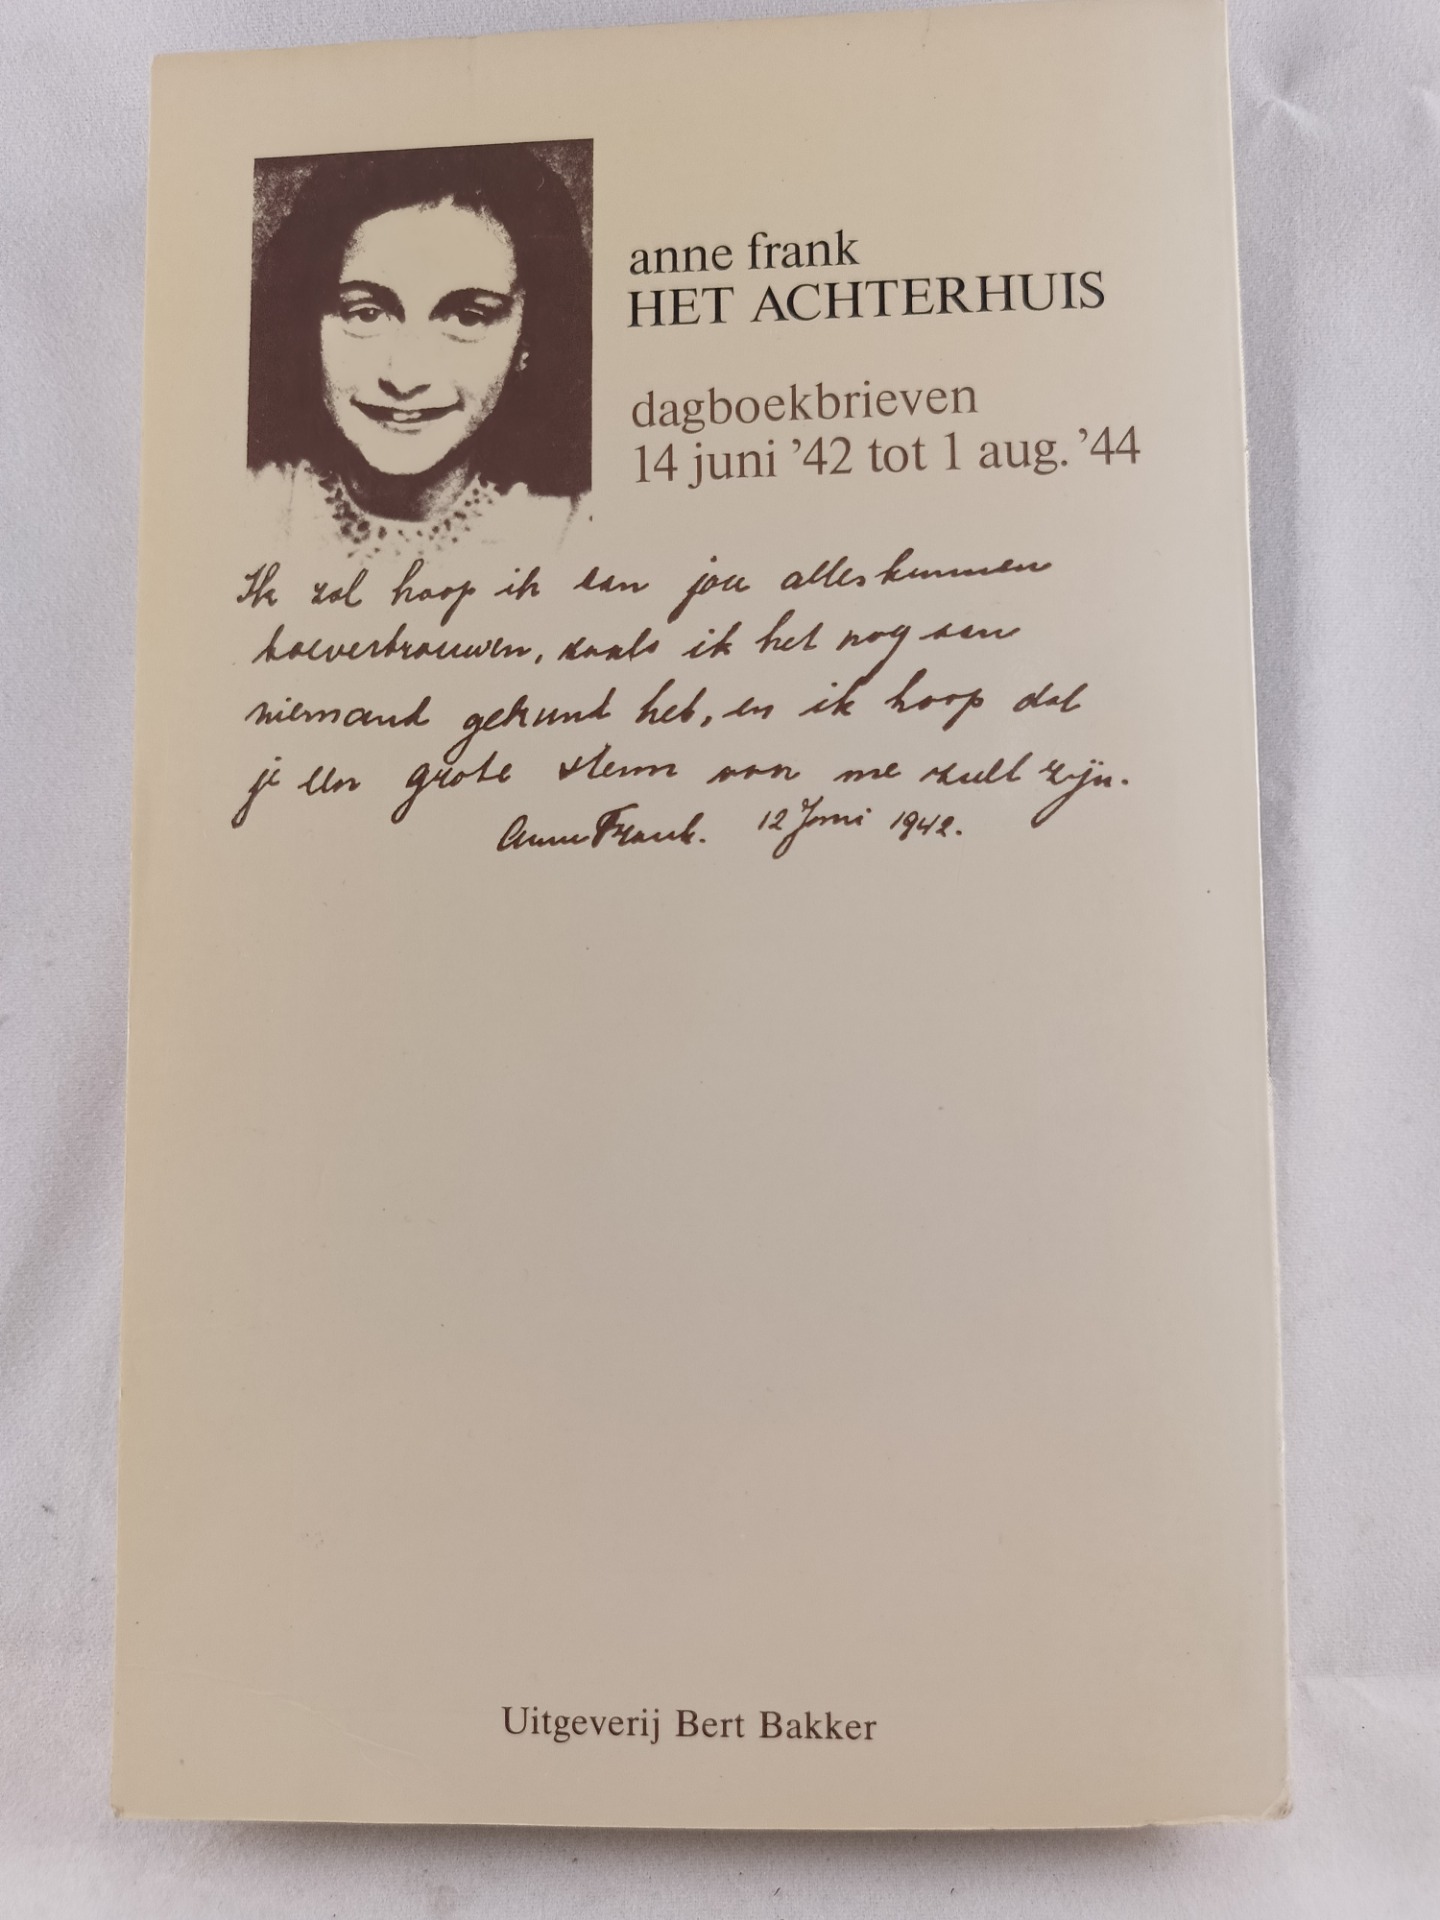 anne frank
HET ACHTERHUIS
dagboekbrieven
14 juni ’42 tot 1 aug. ’44
Ik zal hoop ik aan jou alles kunnen
toevertrouwen, zoals ik het nog aan
niemand gekund heb, en ik hoop dat
je een grote steun van me zult zijn.
Anne Frank. 12 Juni 1942.
Uitgeverij Bert Bakker